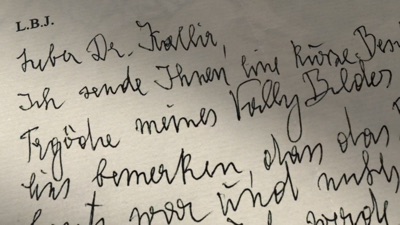 L.B.J.
Lieber Dr. Kallir,
Ich sende Ihnen eine kurze
meines Wally Bildes
bemerken, dass das
war und